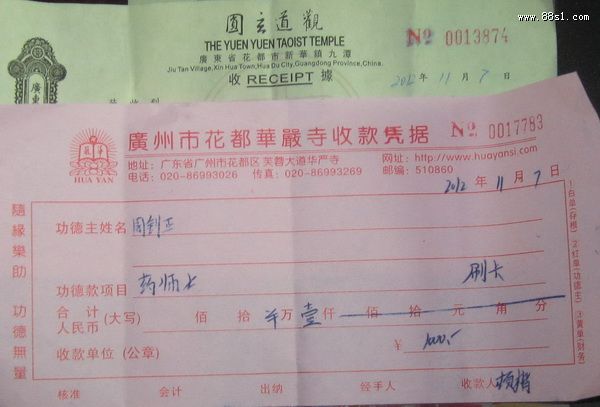 www.88s1.com
圓玄道觀
THE YUEN YUEN TAOIST TEMPLE
廣東省花都市新華鎮九潭
Jiu Tan Village, Xin Hua Town, Hua Du City, Guangdong Province, China.
收 RECEIPT 據
№ 0013874
2012 年 11 月 7 日
廣東
HUA YAN
廣州市花都華嚴寺收款凭据
№ 0017783
地址：广东省广州市花都区芙蓉大道华严寺
网址：http://www.huayansi.com
电话：020-86993026 传真：020-86993269
邮编：510860
2012 年 11 月 7 日
隨緣樂助
功德無量
功德主姓名
功德款项目 药师
刷卡
合计人民币（大写） 佰 拾 万 壹仟 佰 拾 元 角 分
收款单位（公章）
¥ 1000.-
核准 会计 出纳 经手人 收款人
①白单(存根) ②红单(功德主) ③黄单(财务)